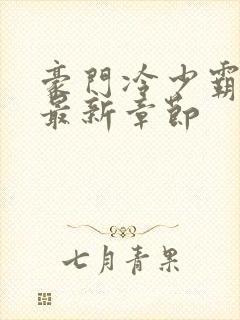 豪门冷少霸
最新章节
七月青果